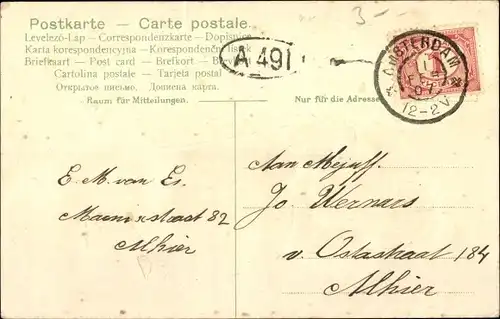 3-
Postkarte — Carte postale.
Levelező-Lap — Correspondenzkarte — Dopisnice
Karta korespondencyjna — Korespondenční lístek
Briefkaart — Post card — Brefkort — Brevkort
Cartolina postale — Tarjeta postal
Открытое письмо. Дописна карта.
Raum für Mitteilungen.
Nur für die Adresse
A 491
AMSTERDAM
12-2V
E. M. van Es.
82
Alhier
Aan Mejuff.
Jo Wernars
v. Ostastraat 184
Alhier